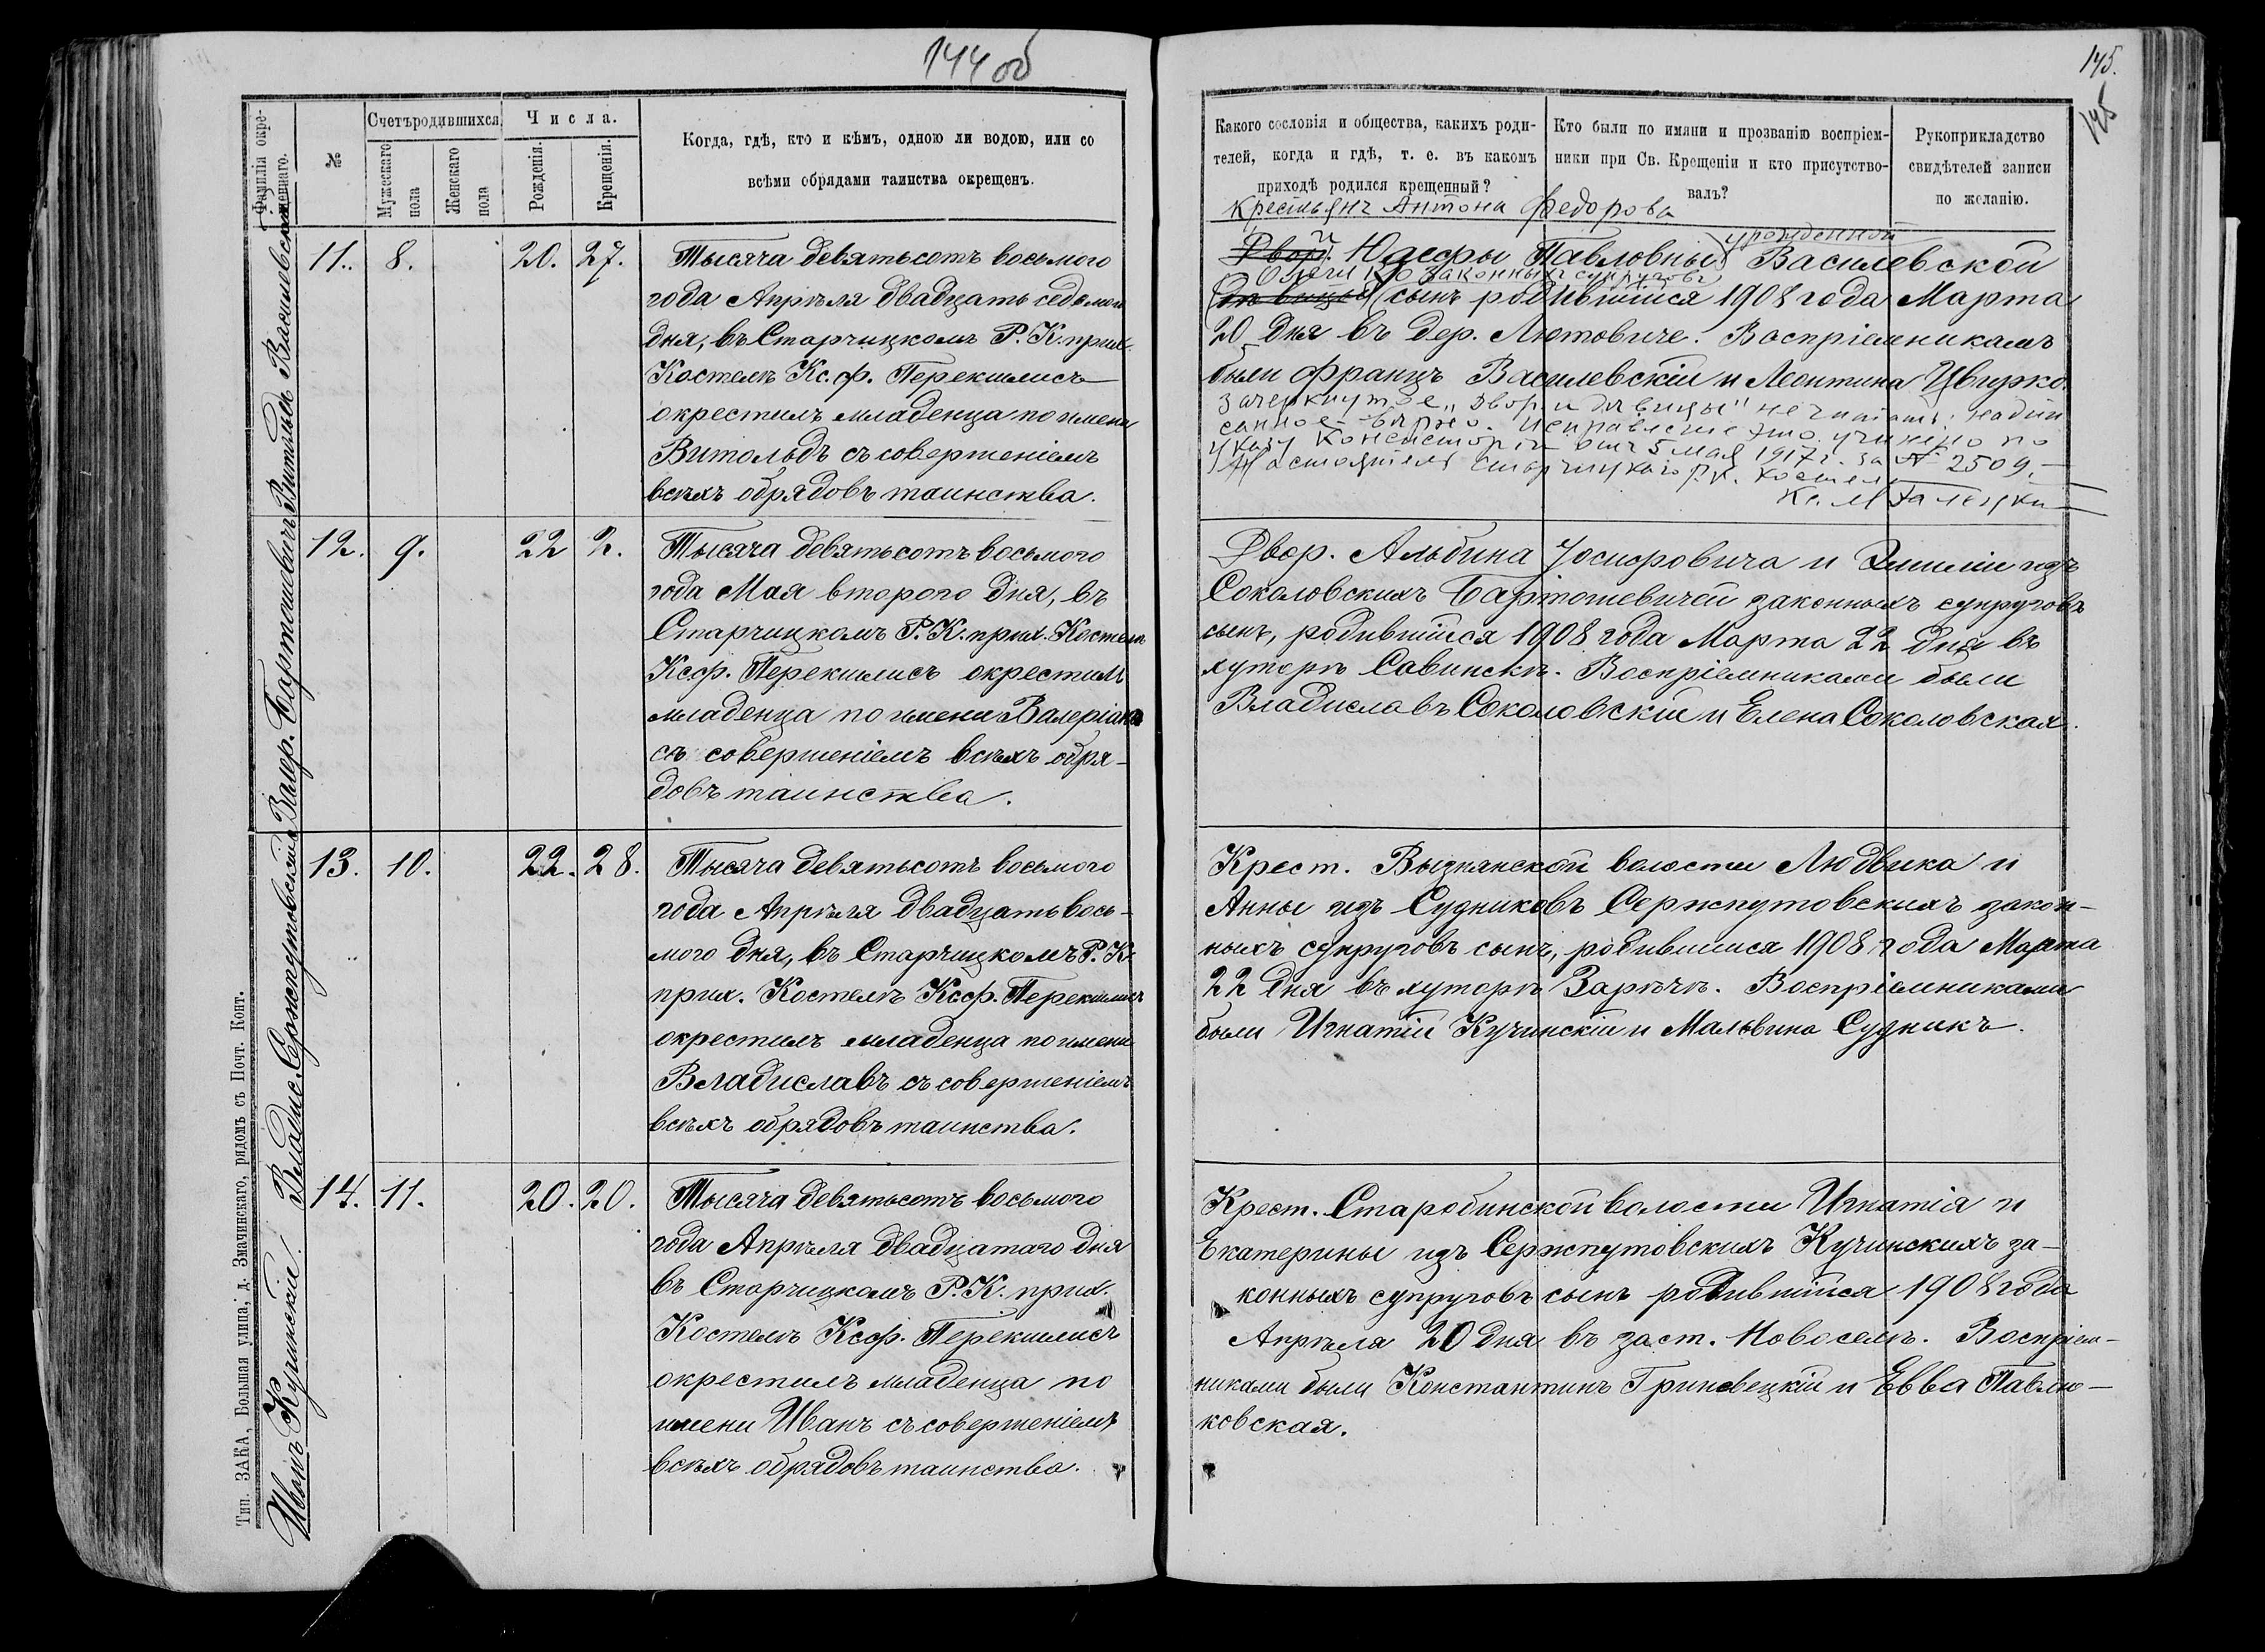 144 об
Фамилія окре-
щеннаго.
№
Счетъ родившихся
Мужескаго
пола
Женскаго
пола
Числа.
Рожденія.
Крещенія.
Когда, гдѣ, кто и кѣмъ, одною ли водою, или со
всѣми обрядами таинства окрещенъ.
Витольдъ Василевскій
11. 8. 20. 27.
Тысяча девятьсотъ восьмого
года Апрѣля двадцать седьмого
дня, въ Старчицкомъ Р. К. прих.
Костелѣ Кс. Ф. Перекшлисъ
окрестилъ младенца по имени
Витольдъ съ совершеніемъ
всѣхъ обрядовъ таинства.
Валер. Бартошевичъ
12. 9. 22 2.
Тысяча девятьсотъ восьмого
года Мая второго дня, въ
Старчицкомъ Р. К. прих. Костелѣ
Кс. Ф. Перекшлисъ окрестилъ
младенца по имени Валеріанъ
съ совершеніемъ всѣхъ обря-
довъ таинства.
Владис. Сержпутовскій
13. 10. 22. 28.
Тысяча девятьсотъ восьмого
года Апрѣля двадцать вось-
мого дня, въ Старчицкомъ Р. К.
прих. Костелѣ Кс. Ф. Перекшлисъ
окрестилъ младенца по имени
Владиславъ съ совершеніемъ
всѣхъ обрядовъ таинства.
Иванъ Кучинскій.
14. 11. 20. 20.
Тысяча девятьсотъ восьмого
года Апрѣля двадцатаго дня
въ Старчицкомъ Р. К. прих.
Костелѣ Кс. Ф. Перекшлисъ
окрестилъ младенца по
имени Иванъ съ совершеніемъ
всѣхъ обрядовъ таинства.
Тип. ЗАКА, Большая улица, д. Змачинскаго, рядомъ съ Почт. Конт.
145.
145
Какого сословія и общества, какихъ роди-
телей, когда и гдѣ, т. е. въ какомъ
приходѣ родился крещенный?
Кто были по имяни и прозванію воспріем-
ники при Св. Крещеніи и кто присутство-
валъ?
Рукоприкладство
свидѣтелей записи
по желанію.
крестьянъ Антона Федорова
урожденной
Двор. и Юзефы Павловны Василевской
законныхъ супруговъ
дѣвицы сынъ родившійся 1908 года Марта
20 дня въ дер. Лютовиче. Воспріемникамъ
были Францъ Василевскій и Леонтина Цвирко.
Зачеркнутое "Двор. и дѣвицы" не читать; надпи
санное вѣрно. Исправленіе это учинено по
указу Консисторіи отъ 5 мая 1917 г. за № 2509.
Настоятель Старчицкаго Р. К. Костела
Кс. М
Двор. Альбина Іосифовича и Эмиліи изъ
Соколовскихъ Бартошевичей законныхъ супруговъ
сынъ, родившійся 1908 года Марта 22 дня въ
хуторѣ Савинскѣ. Воспріемниками были
Владиславъ Соколовскій и Елена Соколовская.
Крест. Вызнянской волости Людвика и
Анны изъ Судниковъ Сержпутовскихъ закон-
ныхъ супруговъ сынъ, родившійся 1908 года Марта
22 дня въ хуторѣ Зарѣчѣ. Воспріемниками
были Игнатій Кучинскій и Мальвина Судникъ.
Крест. Старобинской волости Игнатія и
Екатерины изъ Сержпутовскихъ Кучинскихъ за-
конныхъ супруговъ сынъ родившійся 1908 года
Апрѣля 20 дня въ заст. Новоселѣ. Воспріем-
никами были Константинъ Гриневецкій и Евва Павлю-
ковская.